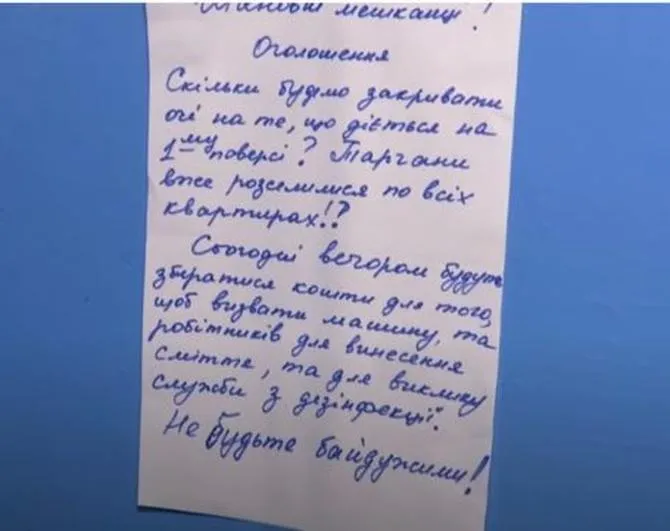 Шановні мешканці!
Оголошення
Скільки будемо закривати
очі на те, що діється на
1-му поверсі? Таргани
вже розселилися по всіх
квартирах!?
Сьогодні вечором будуть
збиратися кошти для того,
щоб визвати машину, та
робітників для винесення
сміття, та для виклику
служби з дезінфекції.
Не будьте байдужими!